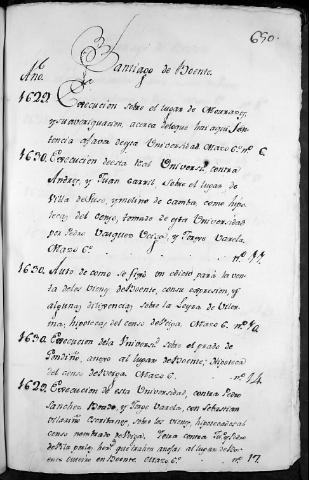 650.
Santiago de Boente.
Año. 6
1629. Execucion sobre el lugar de
y su averiguacion, acerca de lo que hai aqui Sen-
tencia a favor de esta Universidad Mazo 6.º nº 6.
1630. Execucion de esta Real Univers.d contra
Andres, y Juan Garril, sobre el lugar, de
Villa de Suso, y molino de camba, como hipo-
tecas del censo, tomado de esta Universidad
por Pedro Vazquez Veiga, y Tereso Varela.
Mazo 6.º nº 11.
1630. Auto de como se fixó un edicto para la ven-
ta de los vienes de Boente, con su expresion, y
algunas diligencias sobre la Leyra de
hipotecas del censo de Veiga. Mazo 6. nº 10.
1630. Execucion de la Univers.d sobre el prado de
anexo al lugar de Boente; hipoteca
del censo de Veiga. Mazo 6. nº 14.
1629. Execucion de esta Universidad, contra Pedro
Sanchez Bordo, y Tereso Varela, con Sebastian
Escribano, sobre los vienes, hipotecados al
censo nombrado de Veiga. contra y Pedro
de al lugar de Bo-
en Boente. Mazo 6.º nº 17.